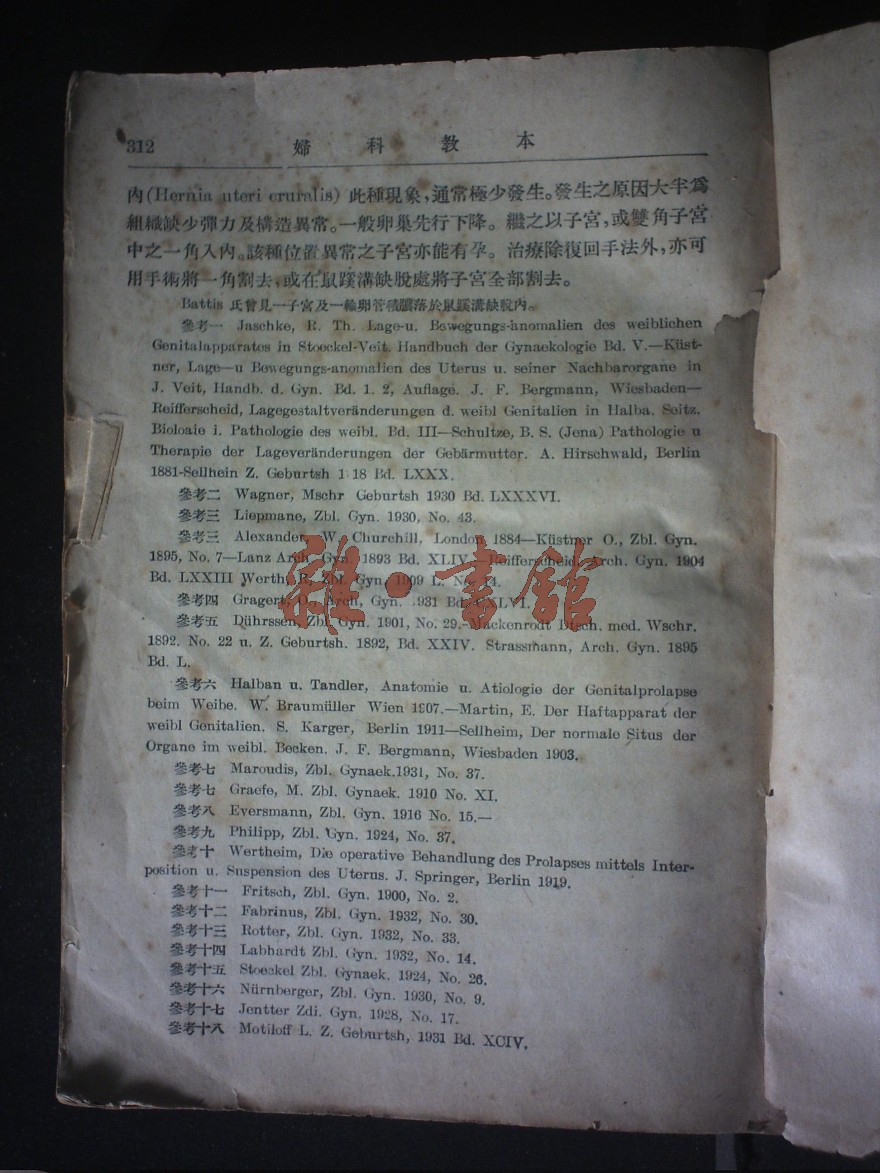 312 婦科教本
內(Hernia uteri cruralis) 此種現象,通常極少發生。發生之原因大半爲
組織缺少彈力及構造異常。一般卵巢先行下降。繼之以子宮,或雙角子宮
中之一角入內。該種位置異常之子宮亦能有孕。治療除復回手法外,亦可
用手術將一角割去,或在鼠蹊溝缺脫處將子宮全部割去。
Battis 氏曾見一子宮及一輸卵管積膿落於鼠蹊溝缺脫內。
參考一 Jaschke, R. Th. Lage-u. Bewegungs-anomalien des weiblichen
Genitalapparates in Stoeckel-Veit. Handbuch der Gynaekologie Bd. V.—Küst-
ner, Lage—u Bewegungs-anomalien des Uterus u. seiner Nachbarorgane in
J. Veit, Handb. d. Gyn. Bd. 1. 2, Auflage. J. F. Bergmann, Wiesbaden—
Reifferscheid, Lagegestaltveränderungen d. weibl Genitalien in Halba. Seitz.
Bioloaie i. Pathologie des weibl. Bd. III—Schultze, B. S. (Jena) Pathologie u
Therapie der Lageveränderungen der Gebärmutter. A. Hirschwald, Berlin
1881-Sellhein Z. Geburtsh 1 18 Bd. LXXX.
參考二 Wagner, Mschr Geburtsh 1930 Bd. LXXXVI.
參考三 Liepmane, Zbl. Gyn. 1930, No. 43.
參考三 Alexander, W. Churchill, London 1884—Küstner O., Zbl. Gyn.
1895, No. 7—Lanz Arch. Gyn. 1893 Bd. XLIV Reifferscheid, Arch. Gyn. 1904
Bd. LXXIII Werth, R, Zbl. Gyn. 1909 L. No.
參考四 Gragert, O., Arch, Gyn. 1931 Bd.
參考五 Dührssen, Zbl. Gyn. 1901, No. 29.-Mackenrodt Dtsch. med. Wschr.
1892. No. 22 u. Z. Geburtsh. 1892, Bd. XXIV. Strassmann, Arch. Gyn. 1895
Bd. L.
參考六 Halban u. Tandler, Anatomie u. Atiologie der Genitalprolapse
beim Weibe. W. Braumüller Wien 1907.—Martin, E. Der Haftapparat der
weibl Genitalien. S. Karger, Berlin 1911—Sellheim, Der normale Situs der
Organe im weibl. Becken. J. F. Bergmann, Wiesbaden 1903.
參考七 Maroudis, Zbl. Gynaek.1931, No. 37.
參考七 Graefe, M. Zbl. Gynaek. 1910 No. XI.
參考八 Eversmann, Zbl. Gyn. 1916 No. 15.—
參考九 Philipp, Zbl. Gyn. 1924, No. 37.
參考十 Wertheim, Die operative Behandlung des Prolapses mittels Inter-
position u. Suspension des Uterus. J. Springer, Berlin 1919.
參考十一 Fritsch, Zbl. Gyn. 1900, No. 2.
參考十二 Fabrinus, Zbl. Gyn. 1932, No. 30.
參考十三 Rotter, Zbl. Gyn. 1932, No. 33.
參考十四 Labhardt Zbl. Gyn. 1932, No. 14.
參考十五 Stoeckel Zbl. Gynaek. 1924, No. 26.
參考十六 Nürnberger, Zbl. Gyn. 1930, No. 9.
參考十七 Jentter Zdi. Gyn. 1928, No. 17.
參考十八 Motiloff L. Z. Geburtsh, 1931 Bd. XCIV.
雜·書館